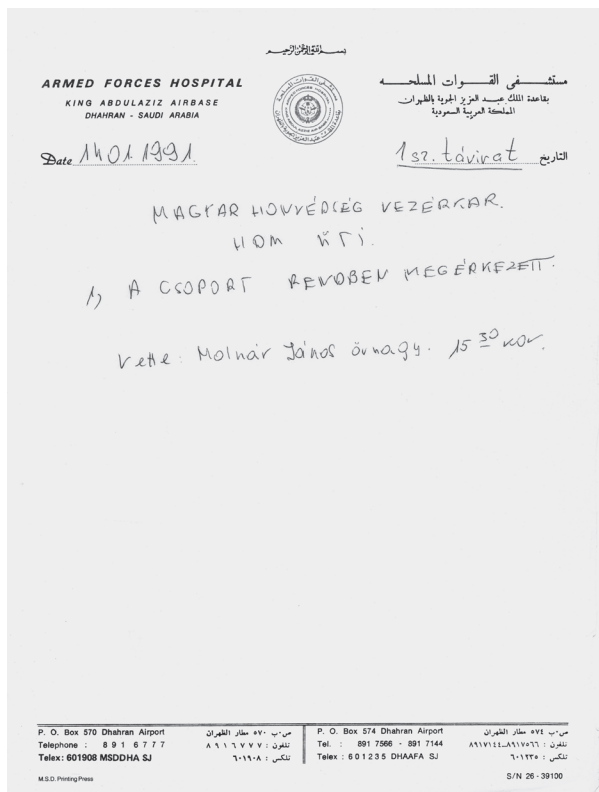 بسم الله الرحمن الرحيم
ARMED FORCES HOSPITAL
KING ABDULAZIZ AIRBASE
DHAHRAN - SAUDI ARABIA
مستشفى القوات المسلحه
بقاعدة الملك عبد العزيز الجوية بالظهران
المملكة العربية السعودية
Date 14 01. 1991.
1 sz. távirat التاريخ
MAGYAR HONVÉDSÉG VEZÉRKAR.
1, A CSOPORT RENDBEN MEGÉRKEZETT.
Vette: Molnár János őrnagy. 15 30 kor.
P. O. Box 570 Dhahran Airport
Telephone : 891 6777
Telex: 601908 MSDDHA SJ
ص.ب ٥٧٠ مطار الظهران
تلفون : ٨٩١٦٧٧٧
تلكس : ٦٠١٩٠٨
P. O. Box 574 Dhahran Airport
Tel. : 891 7566 - 891 7144
Telex : 601235 DHAAFA SJ
ص.ب ٥٧٤ مطار الظهران
تلفون : ٨٩١٧٥٦٦-٨٩١٧١٤٤
تلكس : ٦٠١٢٣٥
M.S.D. Printing Press
S/N 26 - 39100